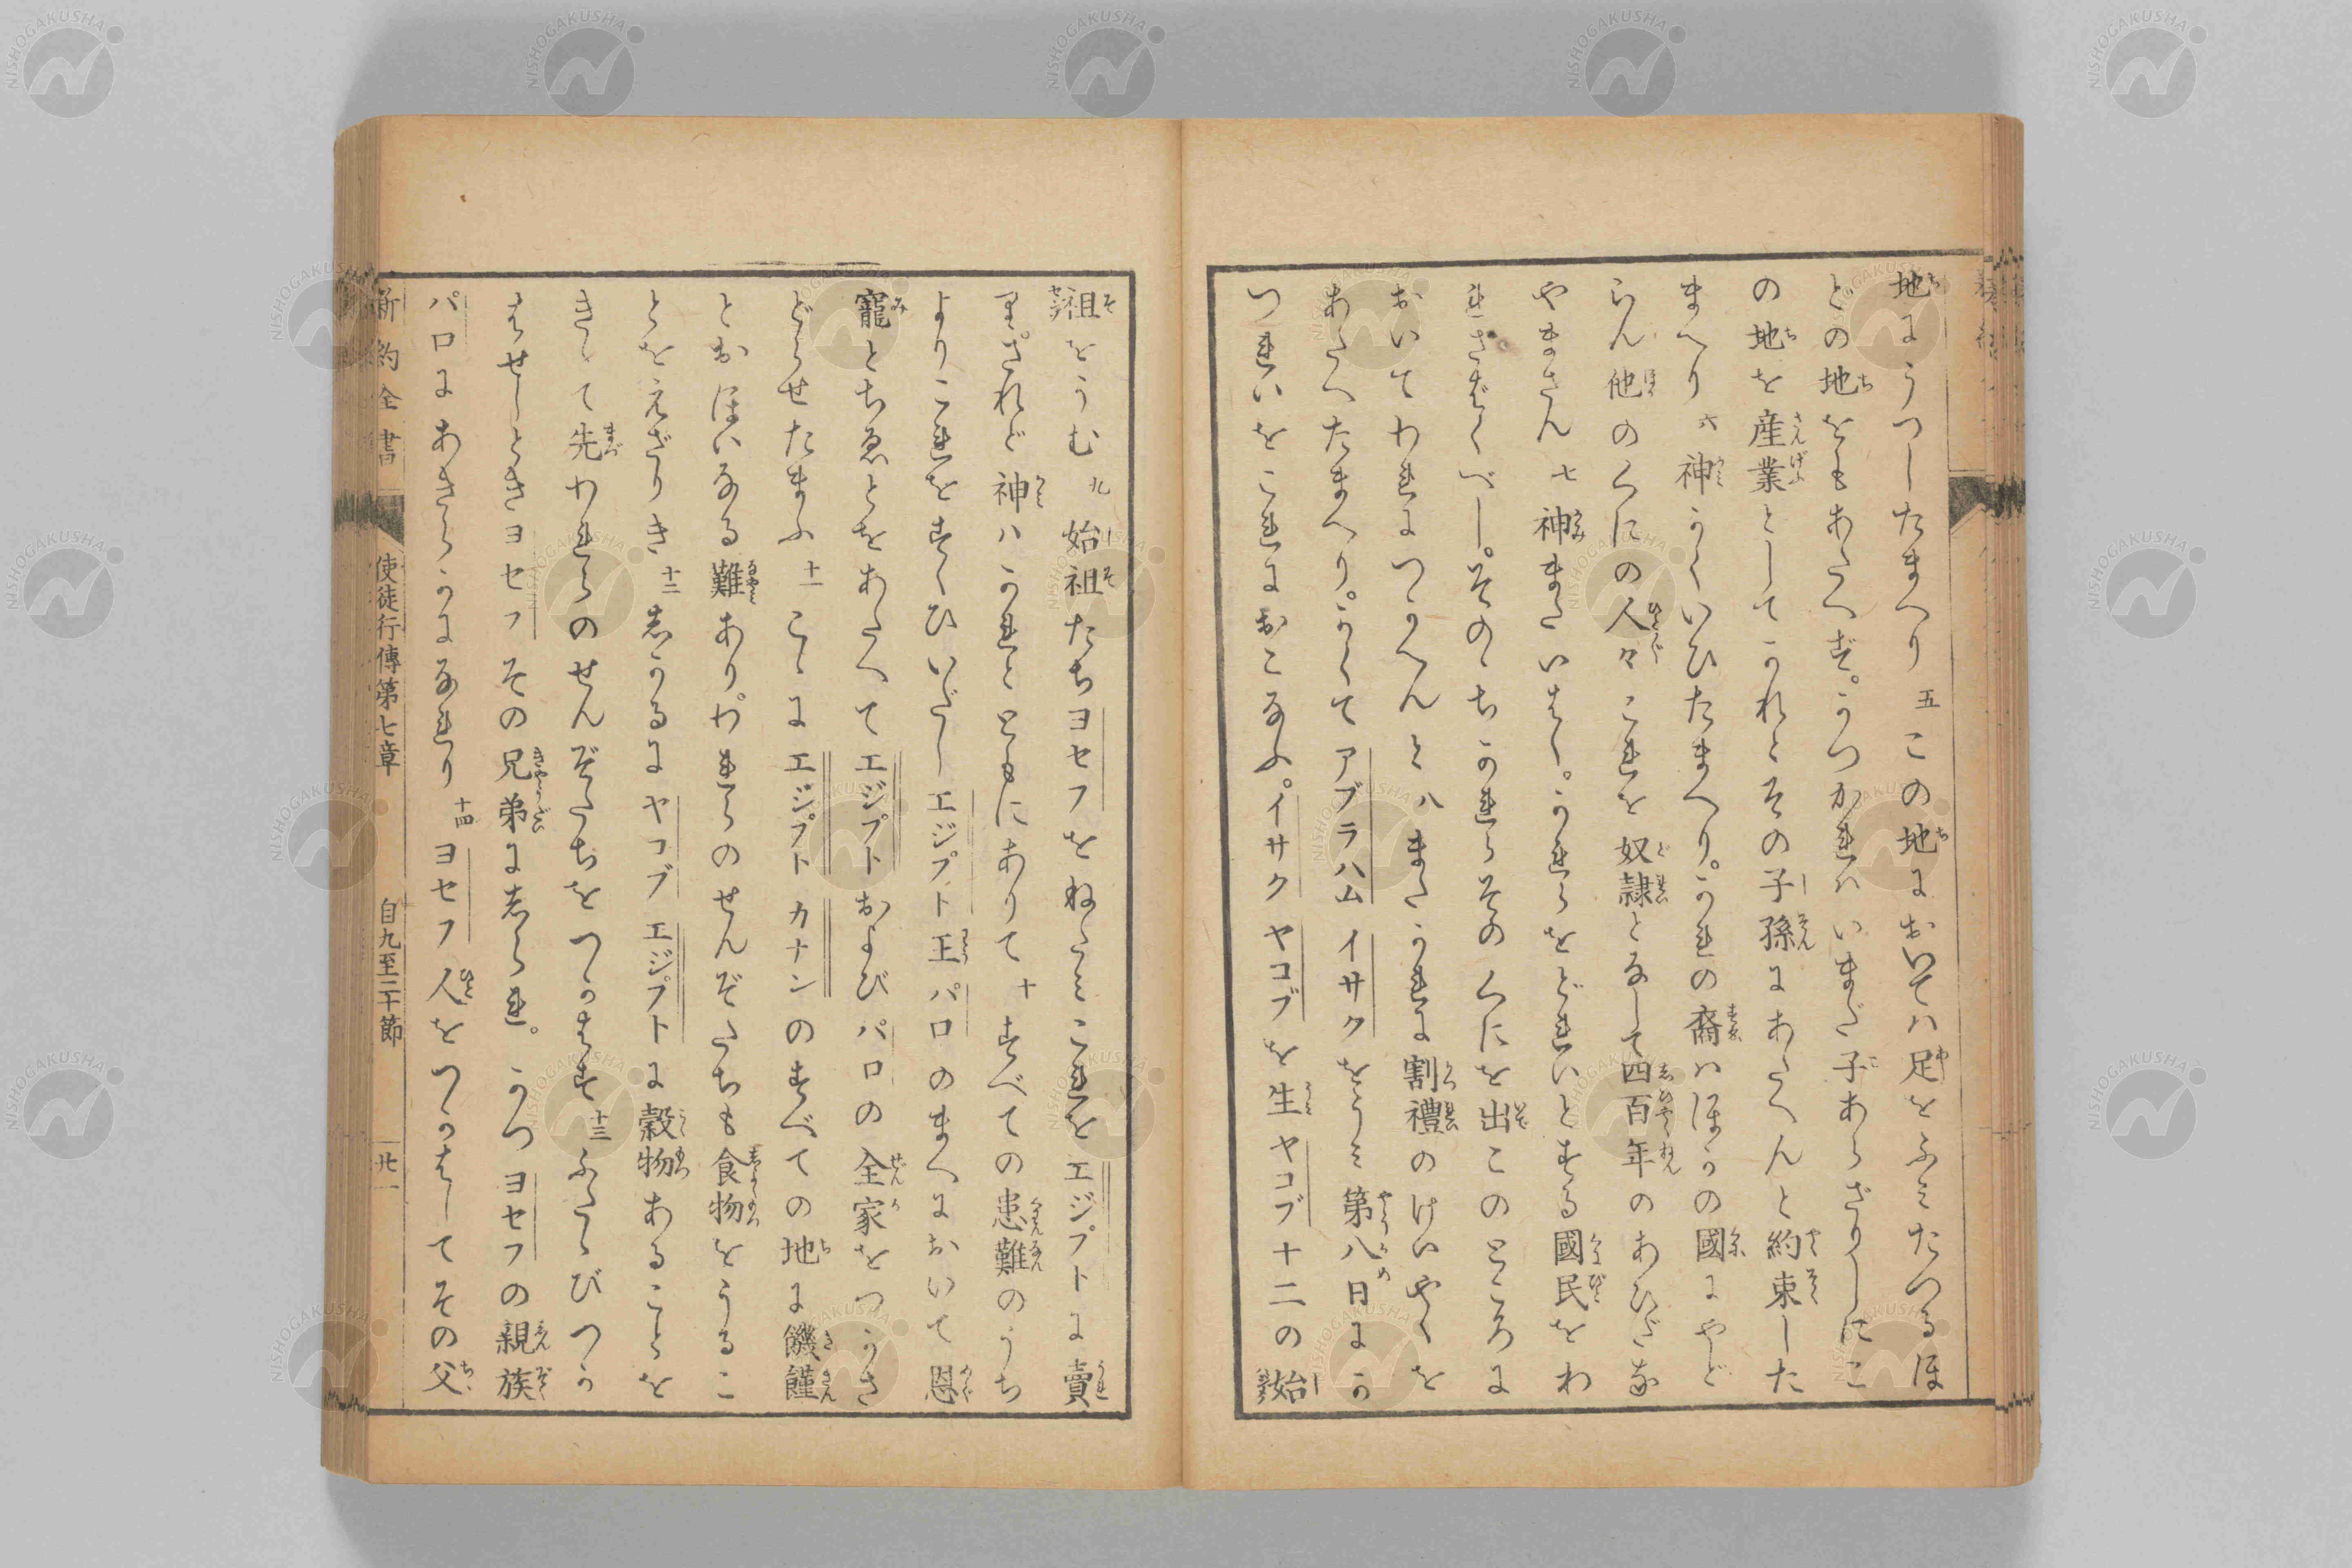 地にうつしたまへり 五 この地においてハ足をふみたつるほ
どの地をもあたへず。かつかれハいまだ子あらざりしにこ
の地を産業としてかれとその子孫にあたへんと約束した
まへり 六 神かくいひたまへり。かれの裔ハほかの國にやど
らん他のくにの人々これを奴隷となして四百年のあひだな
やまさん 七 神またいはく。かれらをどれいとする國民をわ
れさばくべし。そのゝちかれらそのくにを出このところに
おいてわれにつかへんと 八 またかれに割禮のけいやくを
あたへたまへり。かくてアブラハム イサクをうミ第八日にか
つれいをこれにおこなふ。イサク ヤコブを生ヤコブ十二の始
祖をうむ 九 始祖たちヨセフをねたミこれをエジプトに賣
り。されど神ハかれとともにありて 十 すべての患難のうち
よりこれをすくひいだしエジプト王パロのまへにおいて恩
寵とちゑとをあたへてエジプトおよびパロの全家をつかさ
どらせたまふ 十一 こゝにエジプト カナンのすべての地に饑饉
とおほいなる難あり。われらのせんぞたちも食物をうるこ
とをえざりき 十二 しかるにヤコブ エジプトに穀物あることを
きゝて先われらのせんぞたちをつかはす 十三 ふたゝびつか
はせしときヨセフその兄弟にしられ。かつヨセフの親族
パロにあきらかになれり 十四 ヨセフ人をつかはしてその父
新約全書 使徒行傳第七章 自九至二十節 廿一